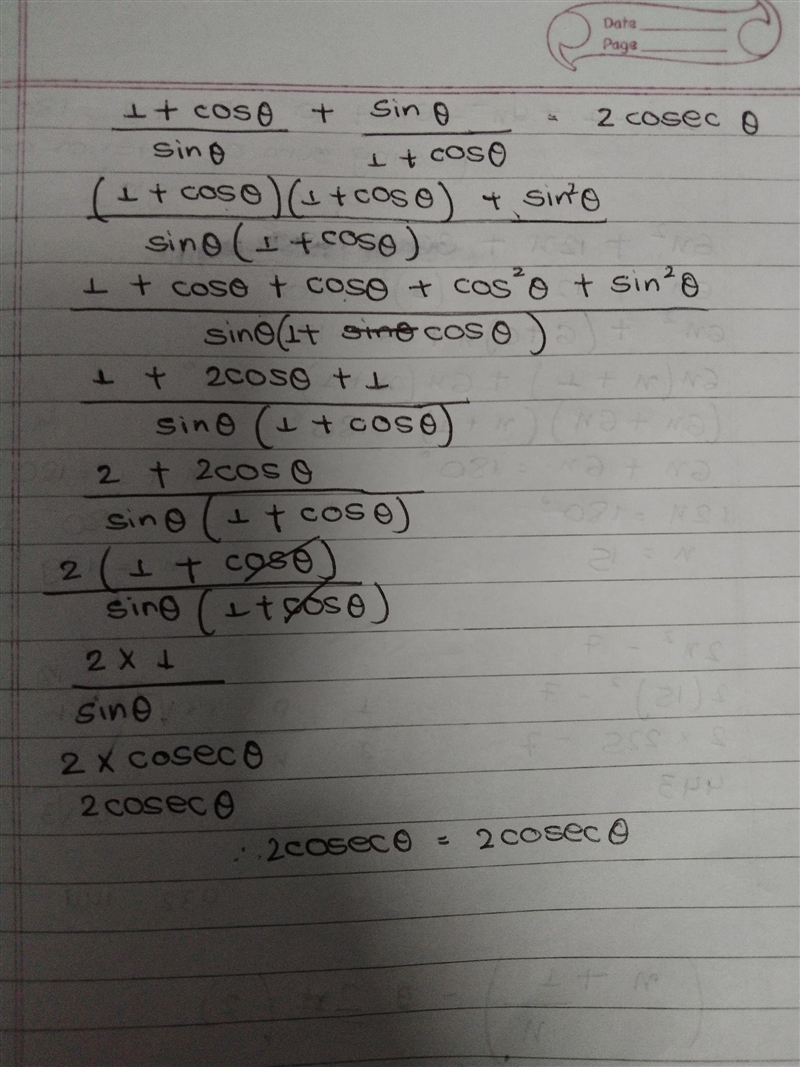 Date
Page
1 + cosθ / sinθ + sin θ / 1 + cosθ = 2 cosec θ
(1 + cosθ)(1 + cosθ) + sin²θ / sinθ (1 + cosθ)
1 + cosθ + cosθ + cos²θ + sin²θ / sinθ(1+ sinθ cosθ)
1 + 2cosθ + 1 / sinθ (1 + cosθ)
2 + 2cosθ / sinθ (1 + cosθ)
2 (1 + cosθ) / sinθ (1 + cosθ)
2 × 1 / sinθ
2 × cosecθ
2cosecθ
∴ 2cosecθ = 2cosecθ